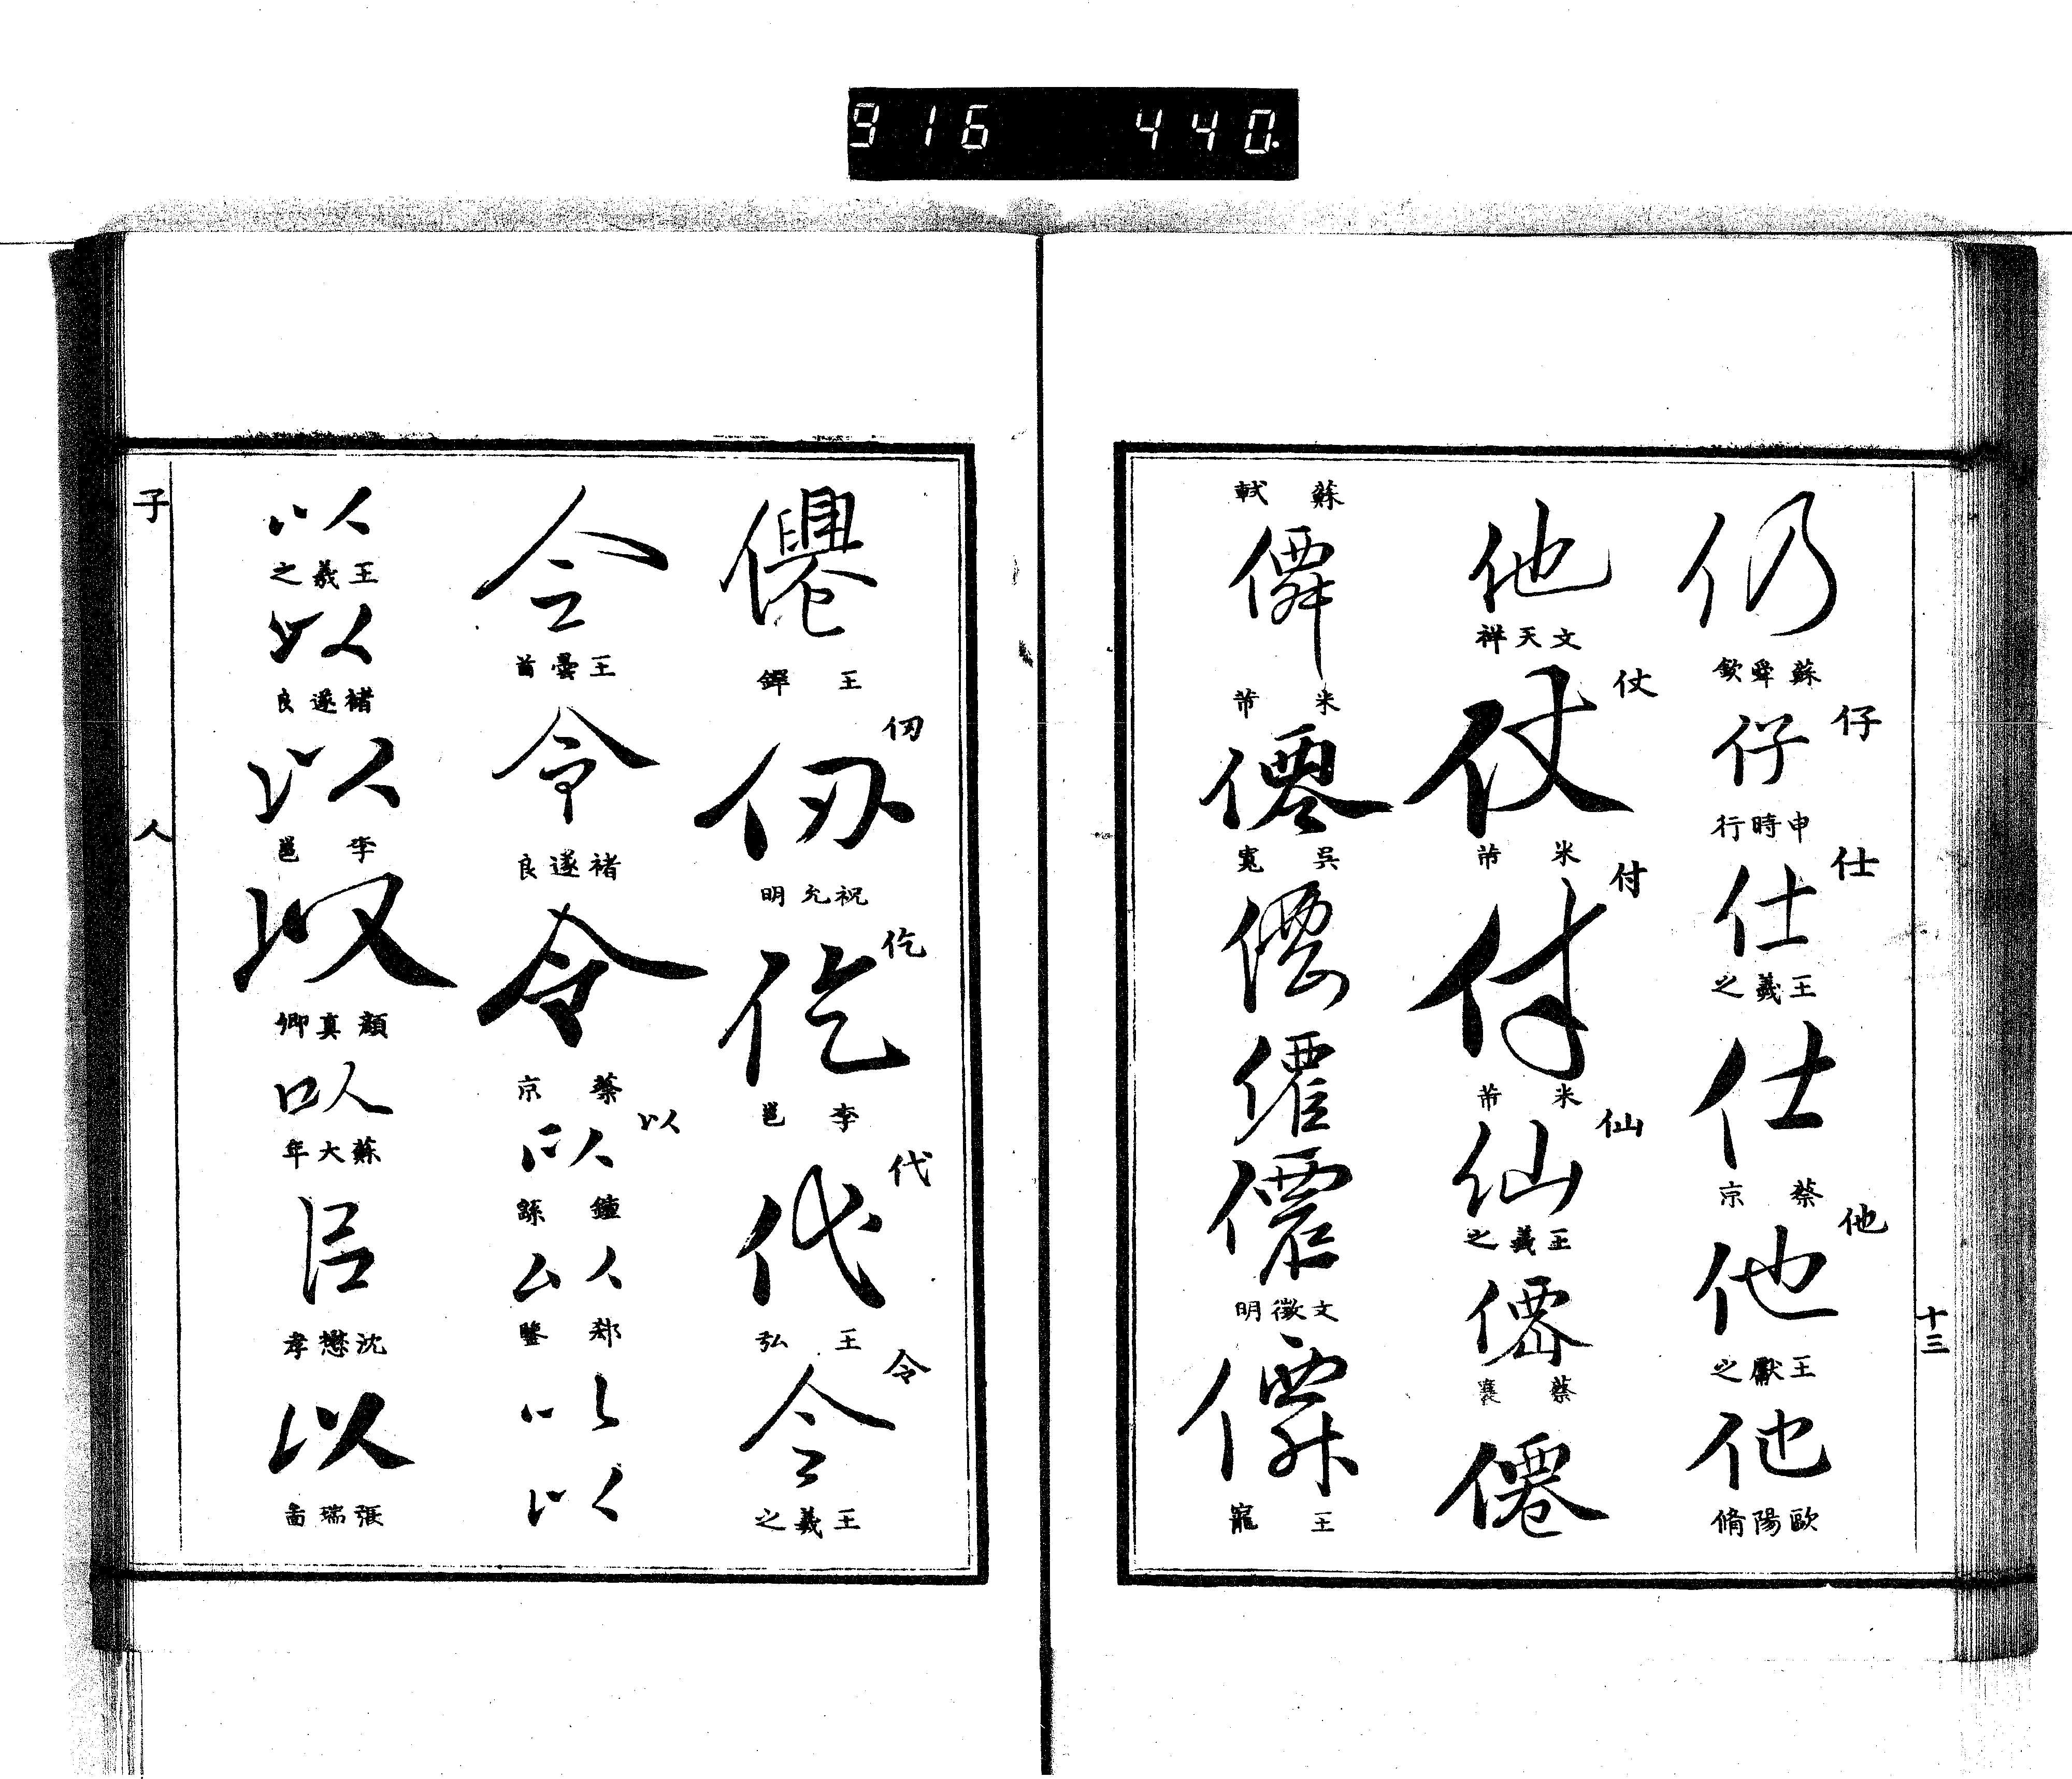 916 440
十三
仍
蘇舜欽
仔
仔
申時行
仕
仕
王羲之
仕
蔡京
他
他
王獻之
他
歐陽脩
他
文天祥
仗
仗
米芾
付
付
米芾
仙
仙
王羲之
僊
蔡襄
僊
蘇軾
僊
米芾
僊
吳寬
僊
僊
僊
文徵明
僊
王寵
僊
王鐸
仞
仞
祝允明
仡
仡
李邕
代
代
王弘
令
令
王羲之
令
王曇首
令
褚遂良
令
蔡京
以
以
鍾繇
以
郗鑒
以
以
以
王羲之
以
褚遂良
以
李邕
以
顏真卿
以
蘇大年
以
沈懋孝
以
張瑞圖
子 人